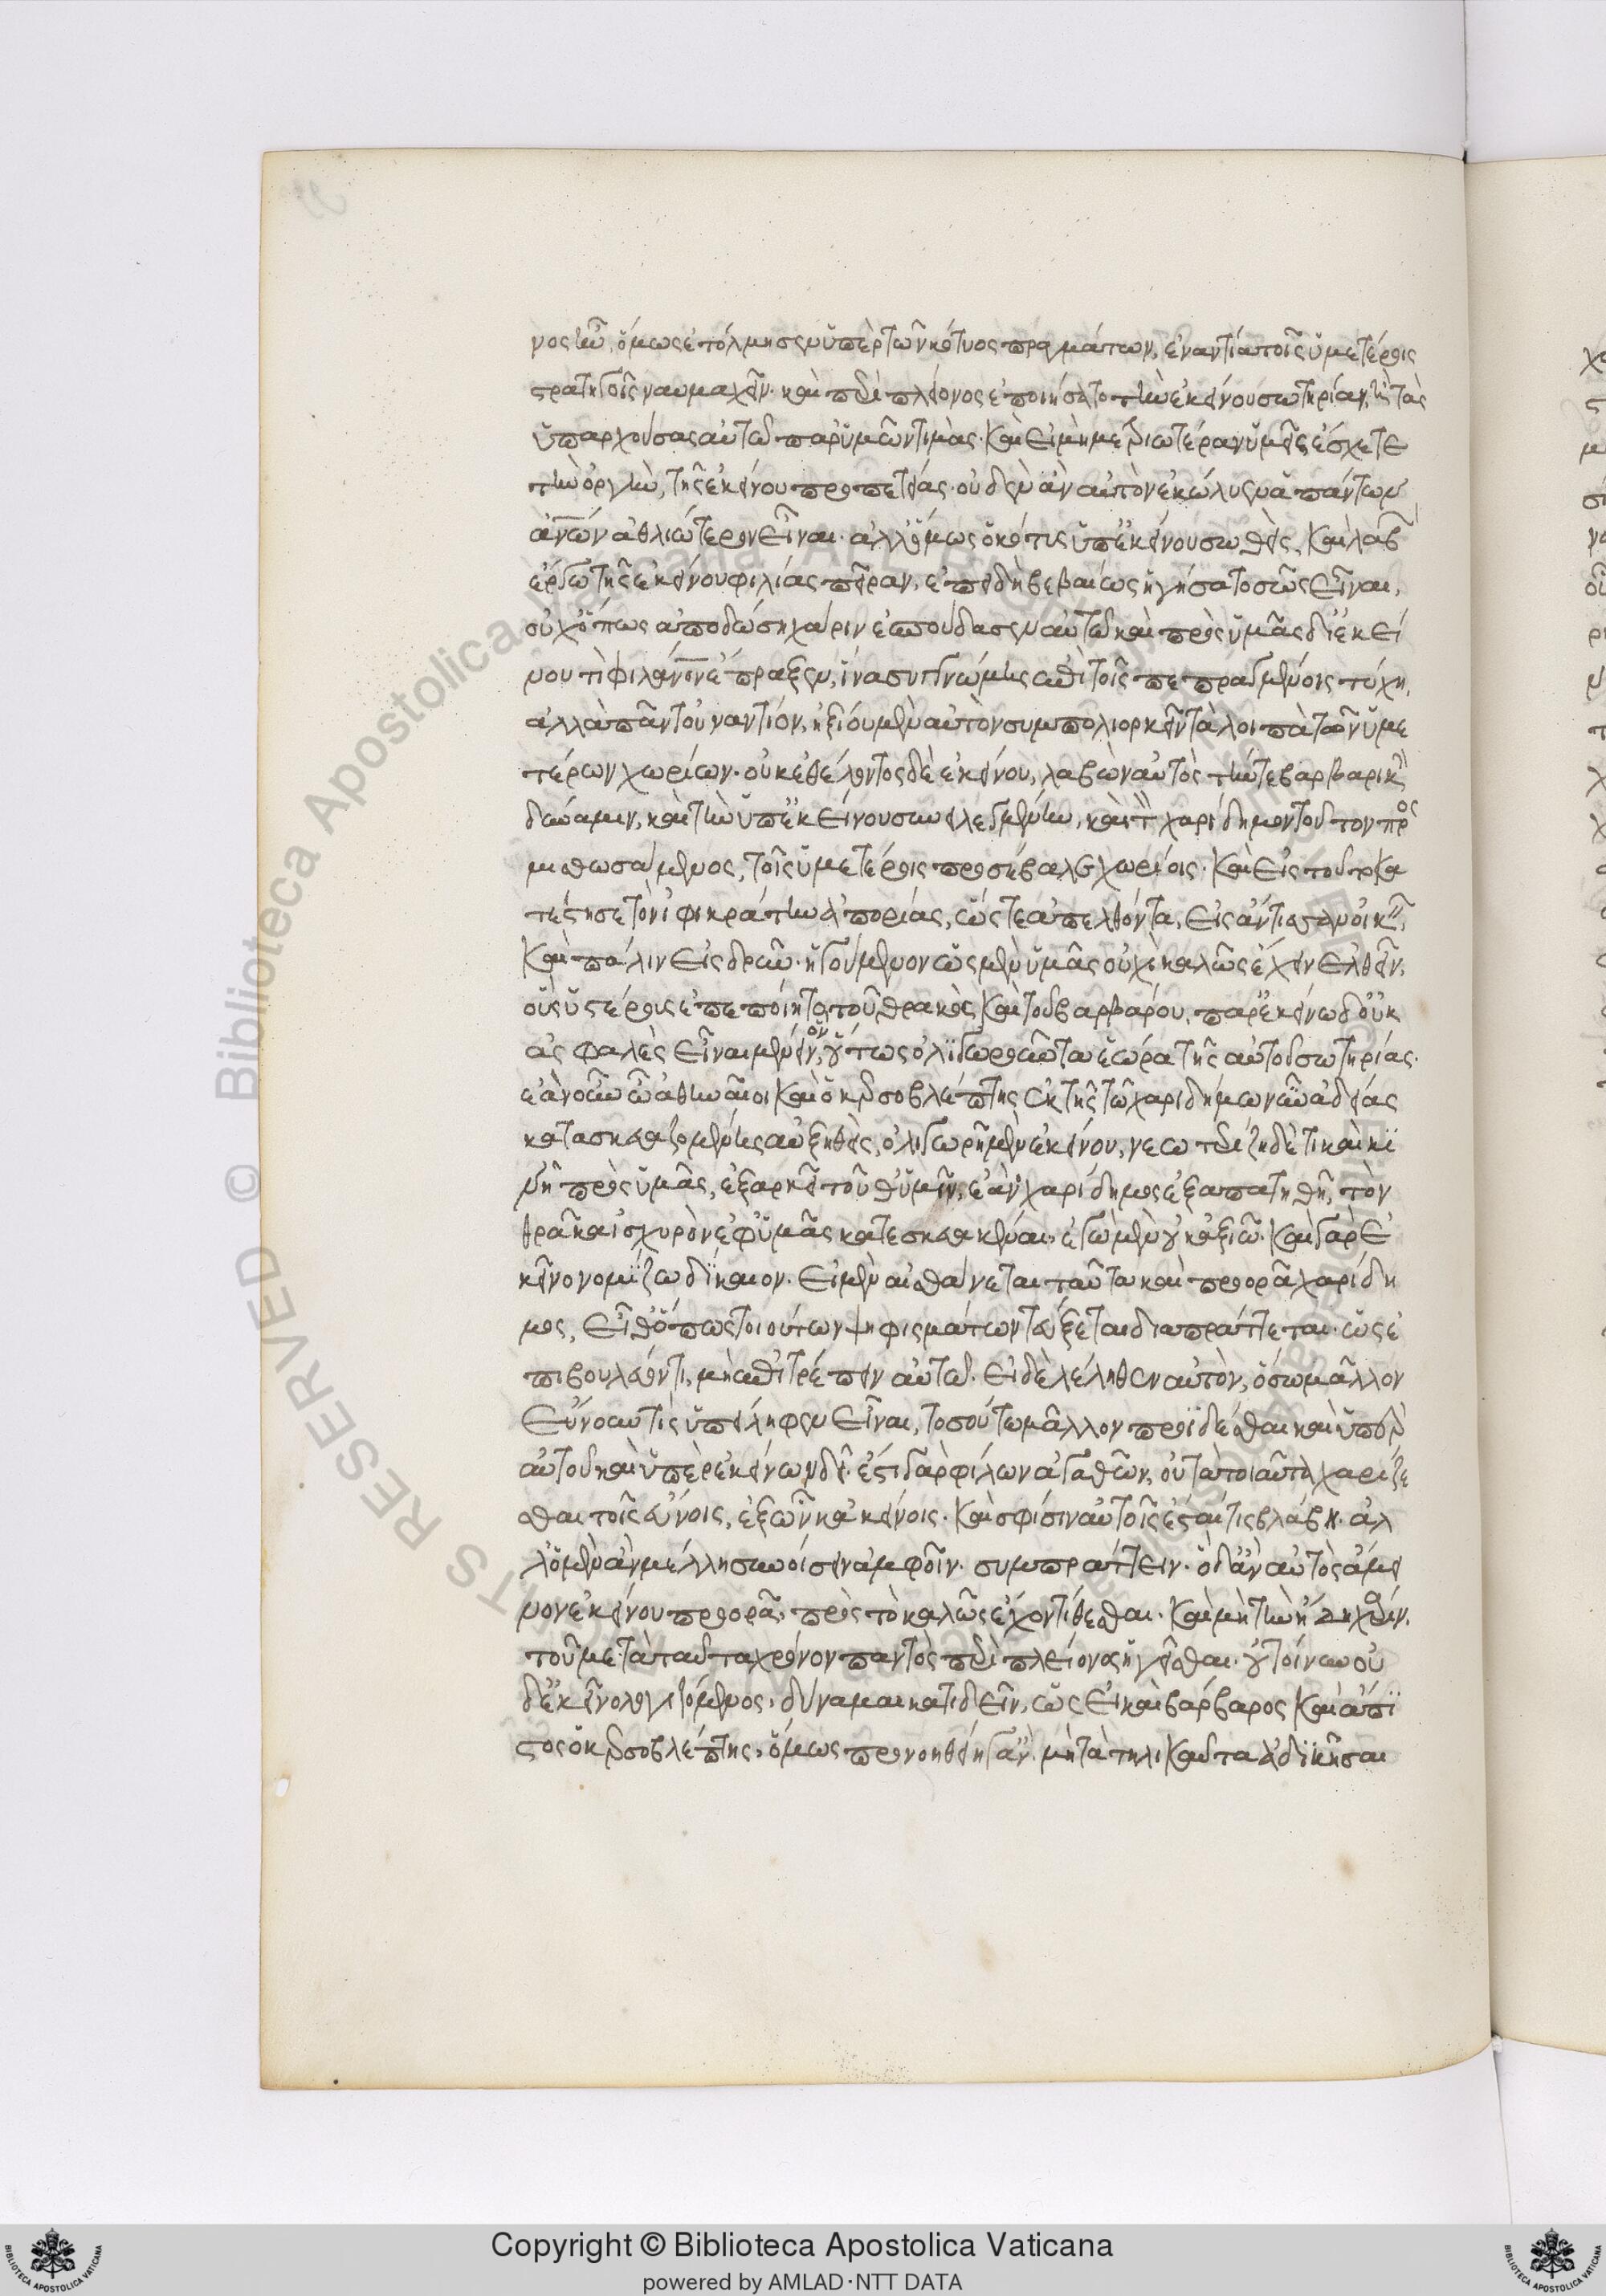 νος ἦν, ὅμως ἐτόλμησεν ὑπὲρ τῶν κότυος πραγμάτων, ἐναντία τοῖς ὑμετέροις
στρατηγοῖς ναυμαχεῖν· καὶ περὶ πλέονος ἐποιήσατο τὴν ἐκείνου σωτηρίαν, ἢ τὰς
ὑπαρχούσας αὐτῶ παρ' ὑμῶν τιμάς. Καὶ εἰ μὴ μετριωτέραν ὑμεῖς ἔσχετε
τὴν ὀργὴν, τῆς ἐκείνου προπετείας· οὐδὲν ἂν αὐτὸν ἐκώλυσεν ἁπάντων
ἀνων ἀθλιώτερον εἶναι· ἀλλ' ὅμως ὁ κότυς ὑπ' ἐκείνου σωθεὶς, καὶ λαβ
ἔργω τῆς ἐκείνου φιλίας πεῖραν, ἐπειδὴ βεβαίως ἡγήσατο σῶς εἶναι,
οὐχ ὅπως ἀποδώση χάριν ἐσπούδασεν αὐτῶ καὶ πρὸς ὑμᾶς δι' ἐκεί
νου τὶ φιλάνον ἔπραξεν, ἵνα συγγνώμης ἐπὶ τοῖς πεπραγμένοις τύχη,
ἀλλὰ πᾶν τοὐναντίον, ἠξίου μὲν αὐτὸν συμπολιορκεῖν τὰ λοιπὰ τῶν ὑμε
τέρων χωρίων· οὐκ ἐθέλοντος δὲ ἐκείνου, λαβὼν αὐτὸς τήν τε βαρβαρικ
δύναμιν, καὶ τὴν ὑπ' ἐκείνου συνειλεγμένην, καὶ τ χαρίδημον τοῦτον προς
μισθωσάμενος, τοῖς ὑμετέροις προσέβαλε χωρίοις. Καὶ εἰς τοῦτο κα
τέστησε τὸν ἰφικράτην ἀπορίας, ὥστε ἀπελθόντα, εἰς ἄντισσαν οἰκεῖν,
καὶ πάλιν εἰς δρῦν· ἡγούμενον ὡς μὲν ὑμᾶς οὐχὶ καλῶς ἔχειν ἐλθεῖν,
οὓς ὑστέρους ἐπεποίητο τοῦ θρακὸς καὶ τοῦ βαρβάρου, παρ' ἐκείνω δ' οὐκ
ἀσφαλὲς εἶναι μένειν, ὃν οὕτως ὀλιγωροῦντα ἑώρα τῆς αὐτοῦ σωτηρίας.
ἐὰν οὖν ὦ ἀθηναῖοι καὶ ὁ κερσοβλέπτης ἐκ τῆς τῶ χαριδήμω νῦν ἀδείας
κατασκευαζομένης αὐξηθεὶς, ὀλιγωρῆ μὲν ἐκείνου, νεωτερίζη δέ τι καὶ κι
νῆ πρὸς ὑμᾶς, ἐξαρκεῖ τοῦθ' ὑμῖν, ἐὰν χαρίδημος ἐξαπατηθῆ, τὸν
θρᾶκα ἰσχυρὸν ἐφ' ὑμᾶς κατεσκευακέναι· ἐγὼ μὲν οὐκ ἀξιῶ· καὶ γὰρ ἐ
κεῖνο νομίζω δίκαιον. εἰ μὲν αἰσθάνεται ταῦτα καὶ προορᾶ χαρίδη
μος, εἶθ' ὅπως τοιούτων ψηφισμάτων τεύξεται διαπράττεται· ὡς ἐ
πιβουλεύοντι, μὴ ἐπιτρέπειν αὐτῶ. εἰ δὲ λέληθεν αὐτὸν, ὅσω μᾶλλον
εὐνοεῖν τὶς ὑπείληφεν εἶναι, τοσούτω μᾶλλον προϊδέσθαι καὶ ὑπὲρ
αὐτοῦ καὶ ὑπὲρ ἐκείνων δεῖ· ἔστι γὰρ φίλων ἀγαθῶν, οὐ τὰ τοιαῦτα χαρίζε
σθαι τοῖς εὔνοις, ἐξ ὧν κἀκείνοις. Καὶ σφίσιν αὐτοῖς ἔσται τις βλάβη. ἀλ
λ' ὃ μὲν ἂν μέλλη συνοίσειν ἀμφοῖν· συμπράττειν· ὃ δ' ἂν αὐτὸς ἄμει
νον ἐκείνου προορᾶ, πρὸς τὸ καλῶς ἔχον τίθεσθαι. Καὶ μὴ τὴν ἤδη χάριν,
τοῦ μετὰ ταῦτα χρόνου παντὸς περὶ πλείονος ἡγεῖσθαι. οὐ τοίνυν οὐ
δ' ἐκεῖνο λογιζόμενος, δύναμαι κατιδεῖν, ὡς εἰ καὶ βάρβαρος καὶ ἄπι
στος ὁ κερσοβλέπτης, ὅμως προνοηθείη γ' ἂν μὴ τὰ τηλικαῦτα ἀδικῆσαι